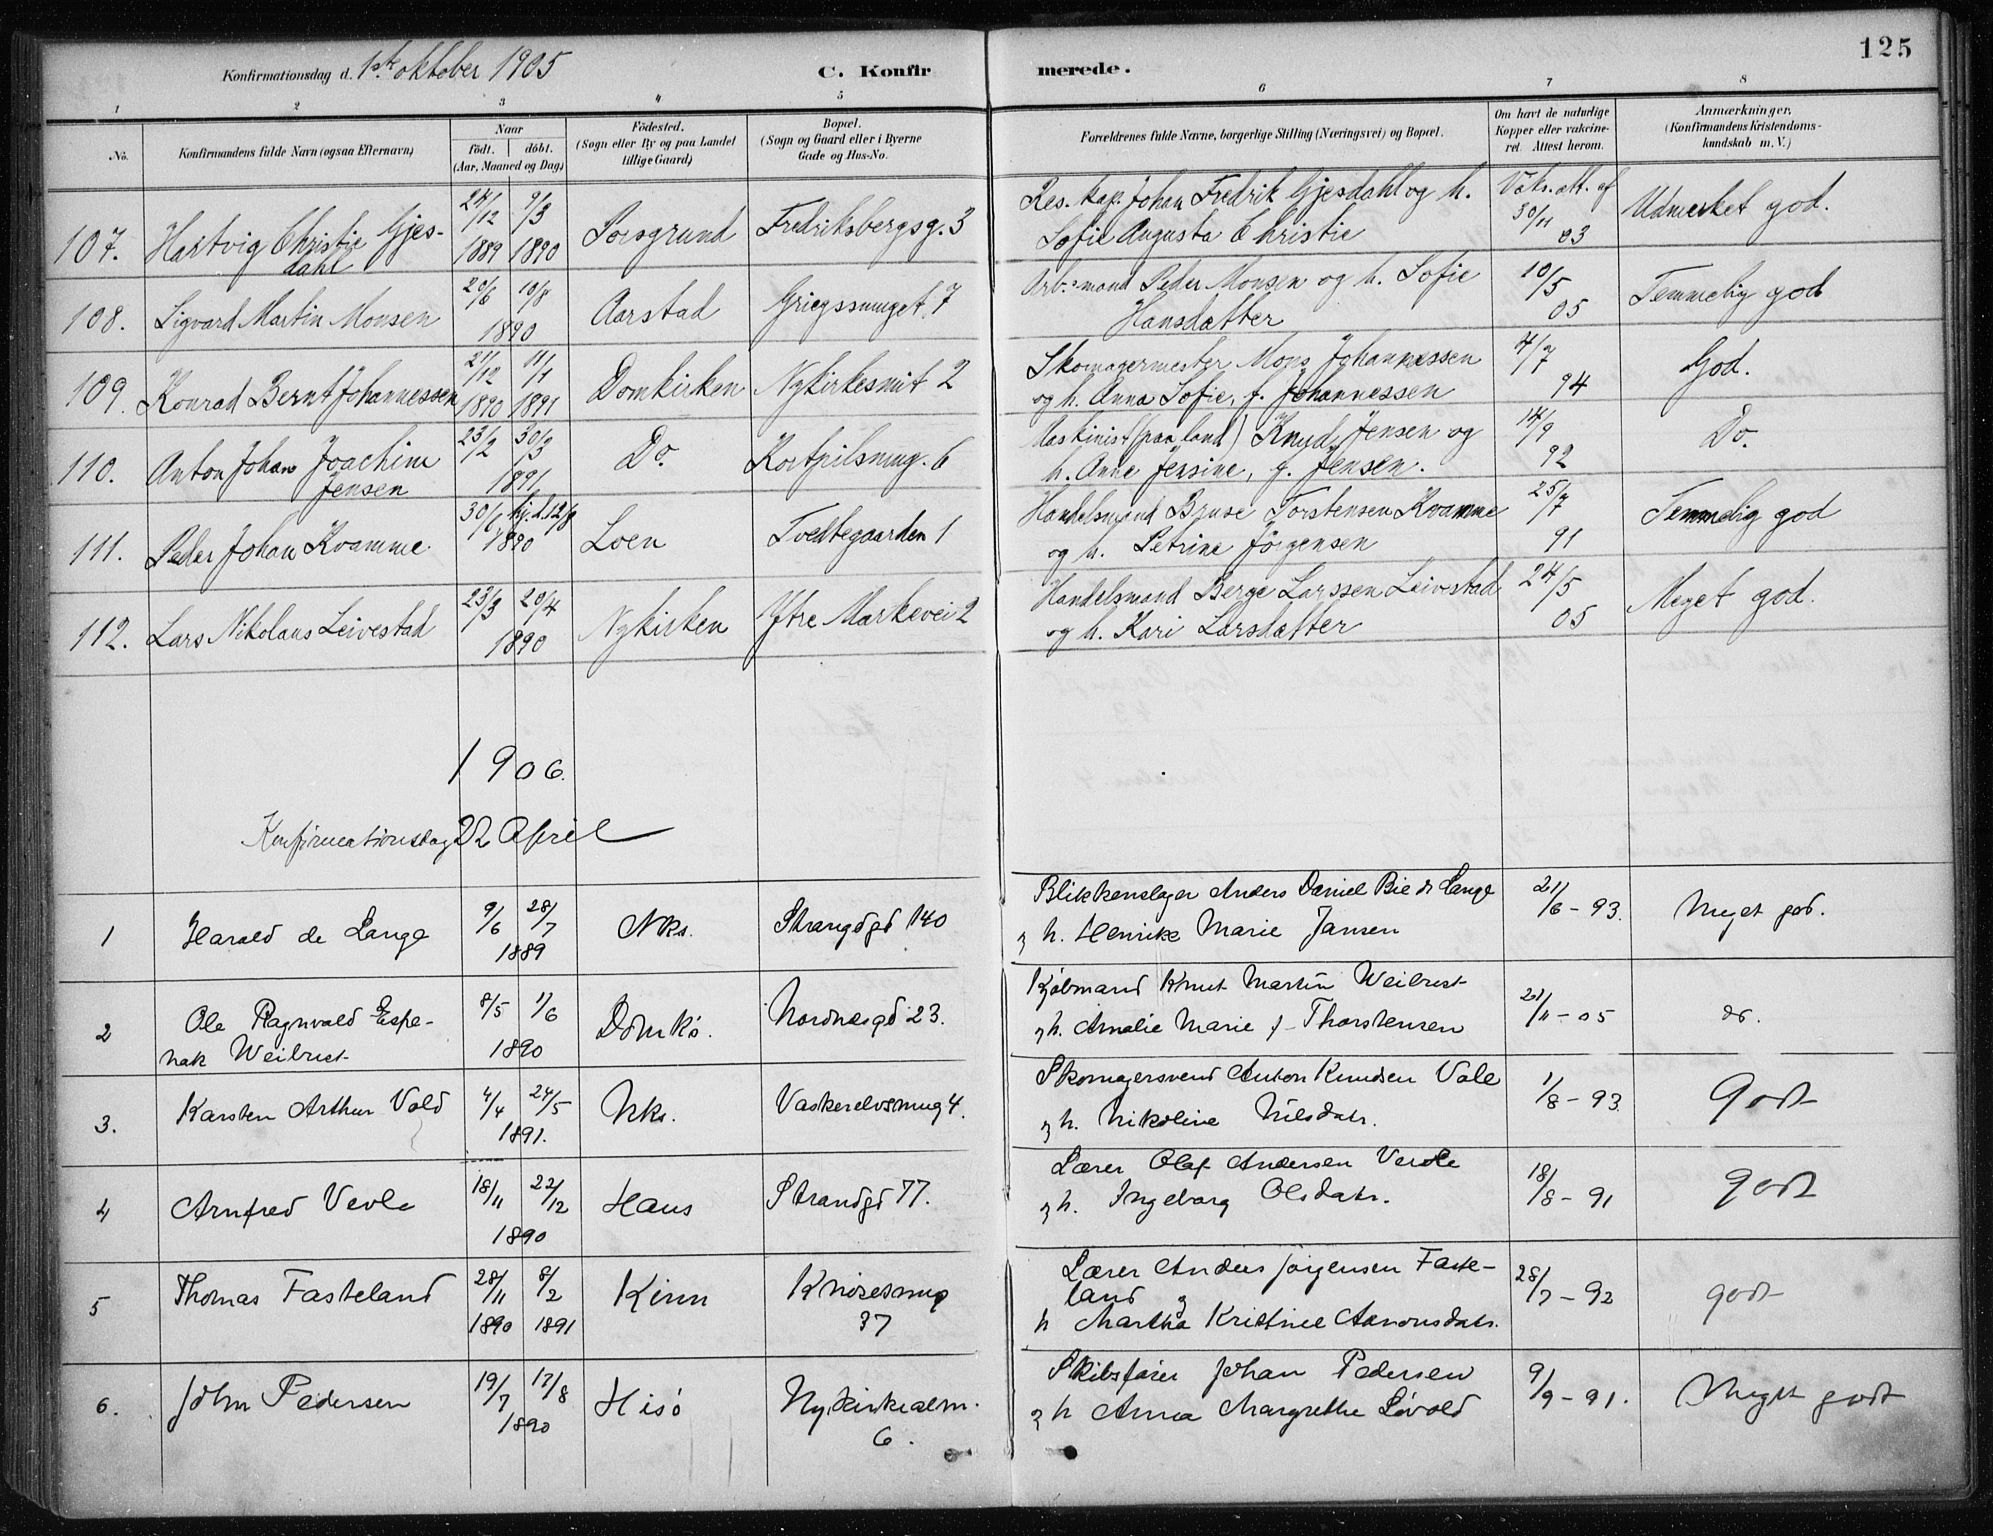 125
Konfirmationsdag d. 1ste oktober 1905
C. Konfirmerede.
1 2 3 4 5 6 7 8
No. Konfirmandens fulde Navn (ogsaa Efternavn) Naar födt. döbt. (Aar, Maaned og Dag) Födested. (Sogn eller By og paa Landet tillige Gaard) Bopæl. (Sogn og Gaard eller i Byerne Gade og Hus-No. Forældrenes fulde Navne, borgerlige Stilling (Næringsvei) og Bopæl. Om havt de naturlige Kopper eller vakcineret. Attest herom. Anmærkninger. (Konfirmandens Kristendomskundskab m. V.)
107. Hartvig Christie Gjesdahl 24/12 1889 9/3 1890 Sorsgrund Fredriksbergsg. 3 Res. kap. Johan Fredrik Gjesdahl og h. Sofie Augusta Christie Vaks. att. af 30/11 03 Udmerket god.
108. Sigvard Martin Monsen 20/6 10/8 1890 Aarstad Griegssmuget 7 Arb.smand Peder Monsen og h. Sofie Hansdatter 10/5 05 Temmelig god
109. Konrad Bernt Johannessen 21/12 1890 11/1 1891 Domkirken Nykirkesmit 2 Skomagermester Mons Johannessen og h. Anna Sofie, f. Johannessen 4/7 94 God.
110. Anton Johan Joachim Jensen 23/2 30/3 1891 Do. Kortpilsmug. 6 Maskinist (paa land) Knud Jensen og h. Anne Jensine, f. Jensen. 14/9 92 Do.
111. Peder Johan Kvamme 30/6 hj. d. 12/8 1890 Loen Tvedtegaarden 1 Handelsmand Torstensen Kvamme og h. Petrine Jörgensen 25/7 91 Temmelig god
112. Lars Nikolaus Leivestad 23/3 20/4 1890 Nykirken Ytre Markevei 2 Handelsmand Berge Larssen Leivestad og h. Kari Larsdatter 24/5 05 Meget god.
1906.
Konfirmationsdag 22 April
1 Harald de Lange 9/6 28/7 1889 Nks. Strangd 140 Blikkenslager Anders Daniel Bie de Lange og h. Henrike Marie Jansen 21/6 - 93. Meget god.
2 Ole Ragnvald Espenak Weibust 8/5 1/6 1890 Domks. Nordnesgd 23. Kjöbmand Knut Martin Weibust og h. Amalie Marie f. Thorstensen 21/11 - 05 do.
3. Karsten Arthur Vold 4/4 24/5 1891. Nks. Vaskerelvsmug 4. Skomagersvend Anton Knudsen Vole og h. Nikoline Nilsdatr. 1/8 - 93. Godt
4 Arnfred Vevle 18/11 22/12 1890 Haus Strandgd 77. Lærer Olaf Andersen Vevle og h. Ingeborg Olsdatr. 18/8 - 91 godt
5 Thomas Fasteland 28/11 1890 8/2 1891 Kinn Knösesmug 37 Lærer Anders Jörgensen Fasteland og h Martha Kristine Aamonsdatr. 28/7 - 92 godt
6. John Pedersen 19/7 17/8 1890 Hisö Nykirkealm. 6. Skibsförer Johan Pedersen og h Anna Margrethe Lövold 9/9 - 91. Meget godt